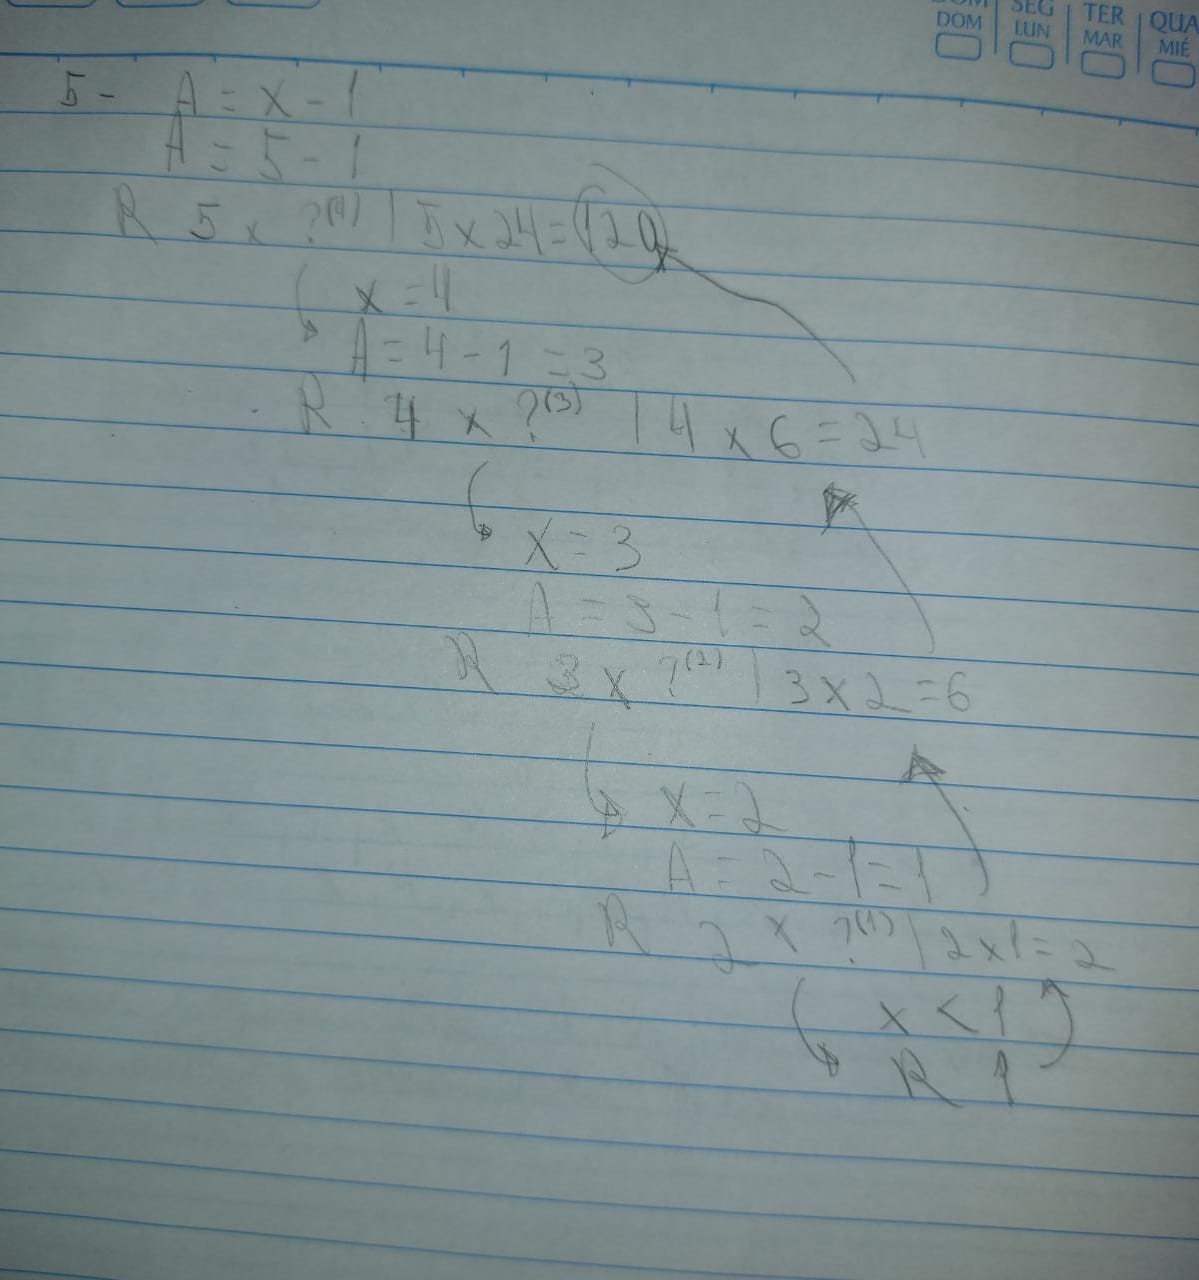 DOM SEG TER QUA
DOM LUN MAR MIÉ
5- A = x - 1
A = 5 - 1
R 5 x ?(4) | 5 x 24 = 120
x = 4
A = 4 - 1 = 3
R 4 x ?(3) | 4 x 6 = 24
x = 3
A = 3 - 1 = 2
R 3 x ?(2) | 3 x 2 = 6
x = 2
A = 2 - 1 = 1
R 2 x ?(1) | 2 x 1 = 2
x < 1
R 1